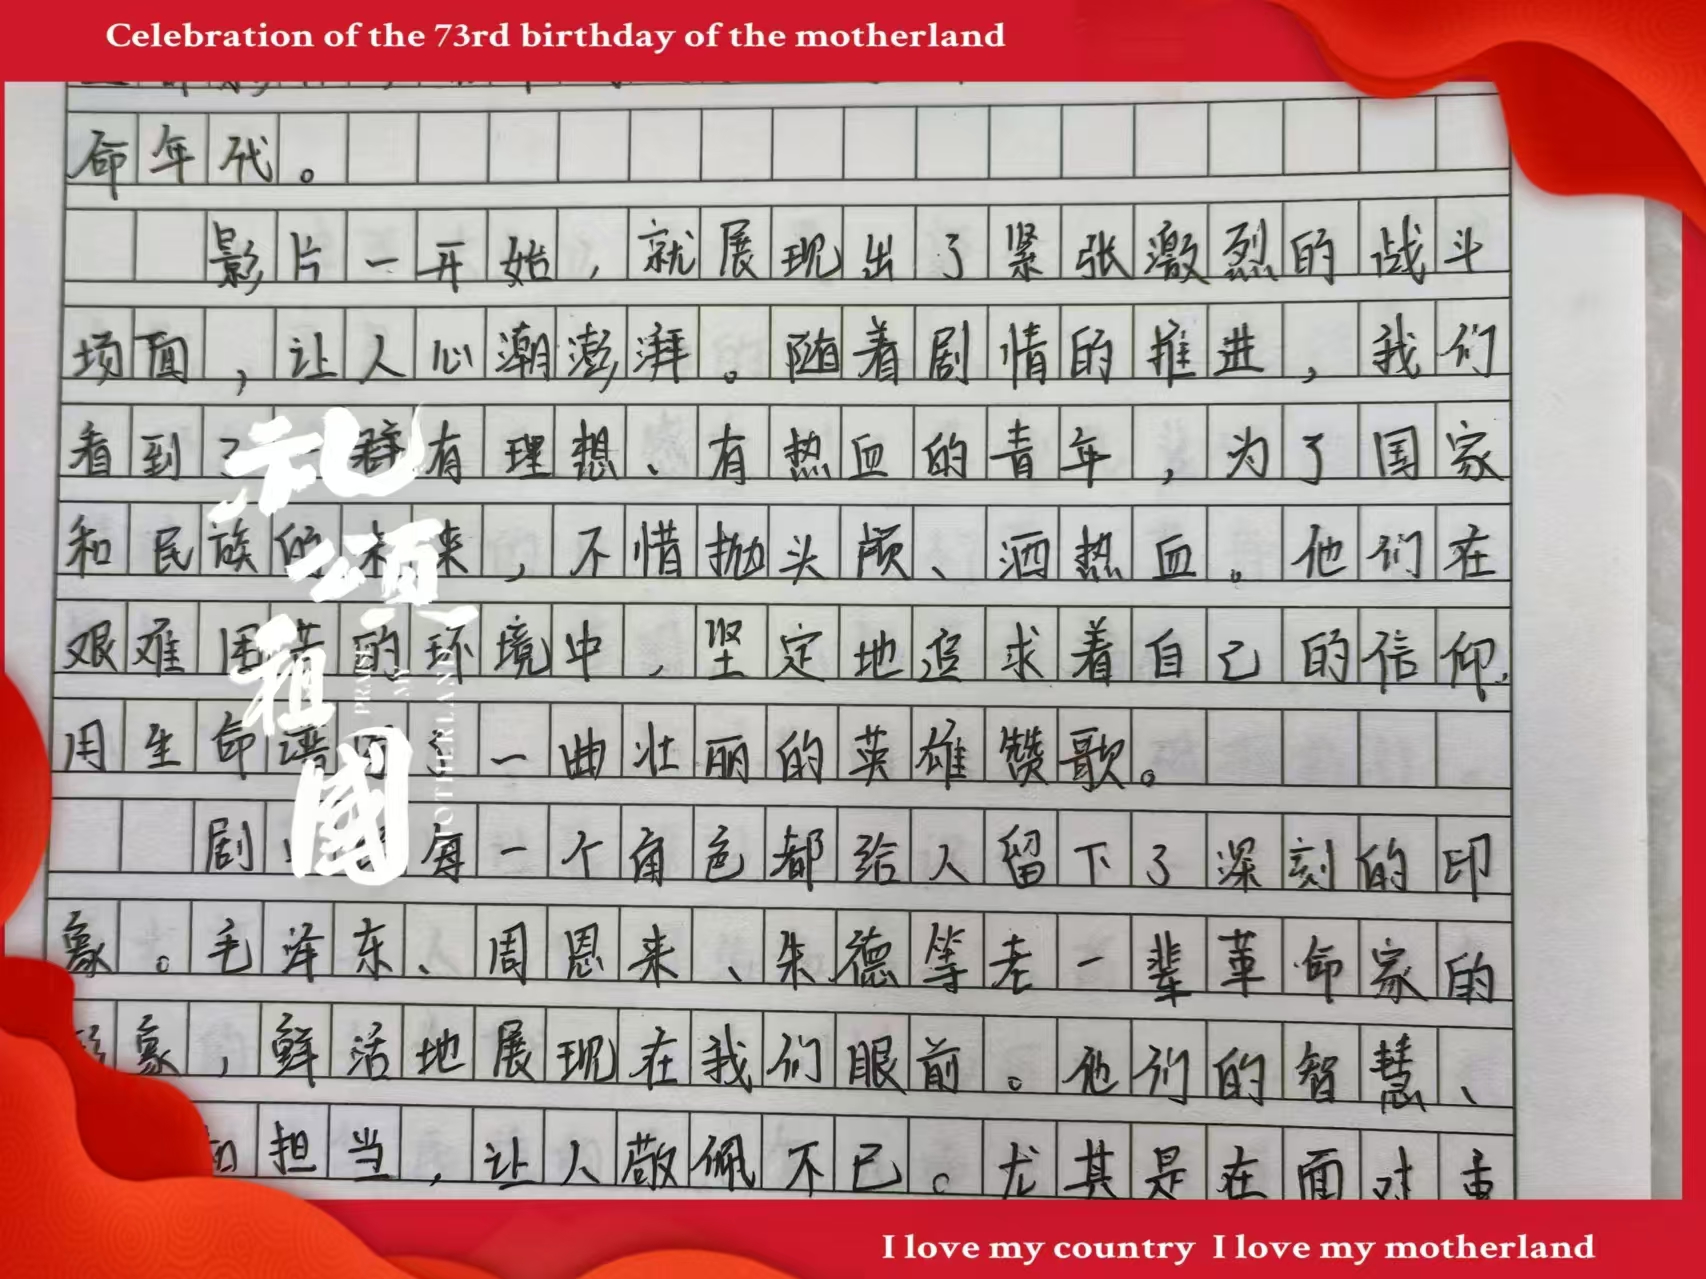 Celebration of the 73rd birthday of the motherland
命年代。
影片一开始，就展现出了紧张激烈的战斗
场面，让人心潮澎湃。随着剧情的推进，我们
看到了一群有理想、有热血的青年，为了国家
和民族的未来，不惜抛头颅、洒热血。他们在
艰难困苦的环境中，坚定地追求着自己的信仰，
用生命谱写了一曲壮丽的英雄赞歌。
剧 每一个角色都给人留下了深刻的印
象。毛泽东、周恩来、朱德等老一辈革命家的
象，鲜活地展现在我们眼前。他们的智慧、
和担当，让人敬佩不已。尤其是在面对
礼颂祖國
PRAISE MY MOTHERLAND
I love my country I love my motherland